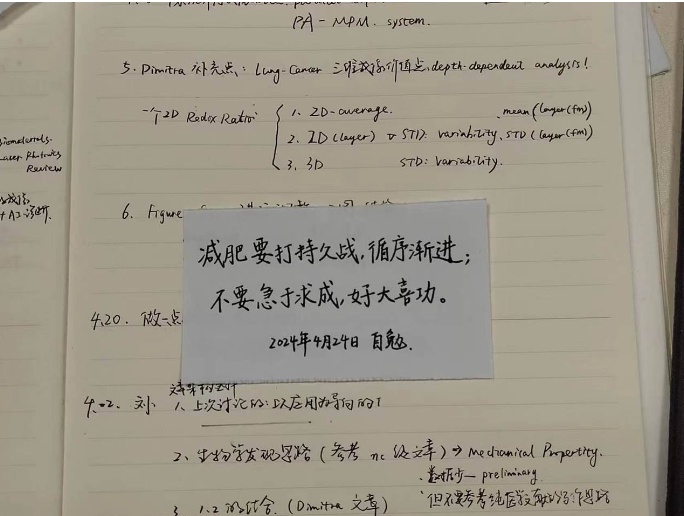 PA-MPM. system.
5. Dimitra 补充点: Lung-Cancer 三维成像价值点, depth-dependent analysis!
一个2D Redox Ratio:
1. 2D-average. mean(layer(fm))
2. 2D(layer) STD: variability, STD(layer(fm))
3. 3D STD: variability.
Biomaterials.
Laser Photonics
Review
6. Figure
减肥要打持久战,循序渐进;
不要急于求成,好大喜功。
2024年4月24日 自勉.
4.20. 做一点
4.02. 刘 1、上次讨论的: 以应用为导向的
2、生物学发现思路(参考 nc 级文章) → Mechanical Propertity.
数据少 — preliminary
3 1.2 的结合. (Dimitra 文章)